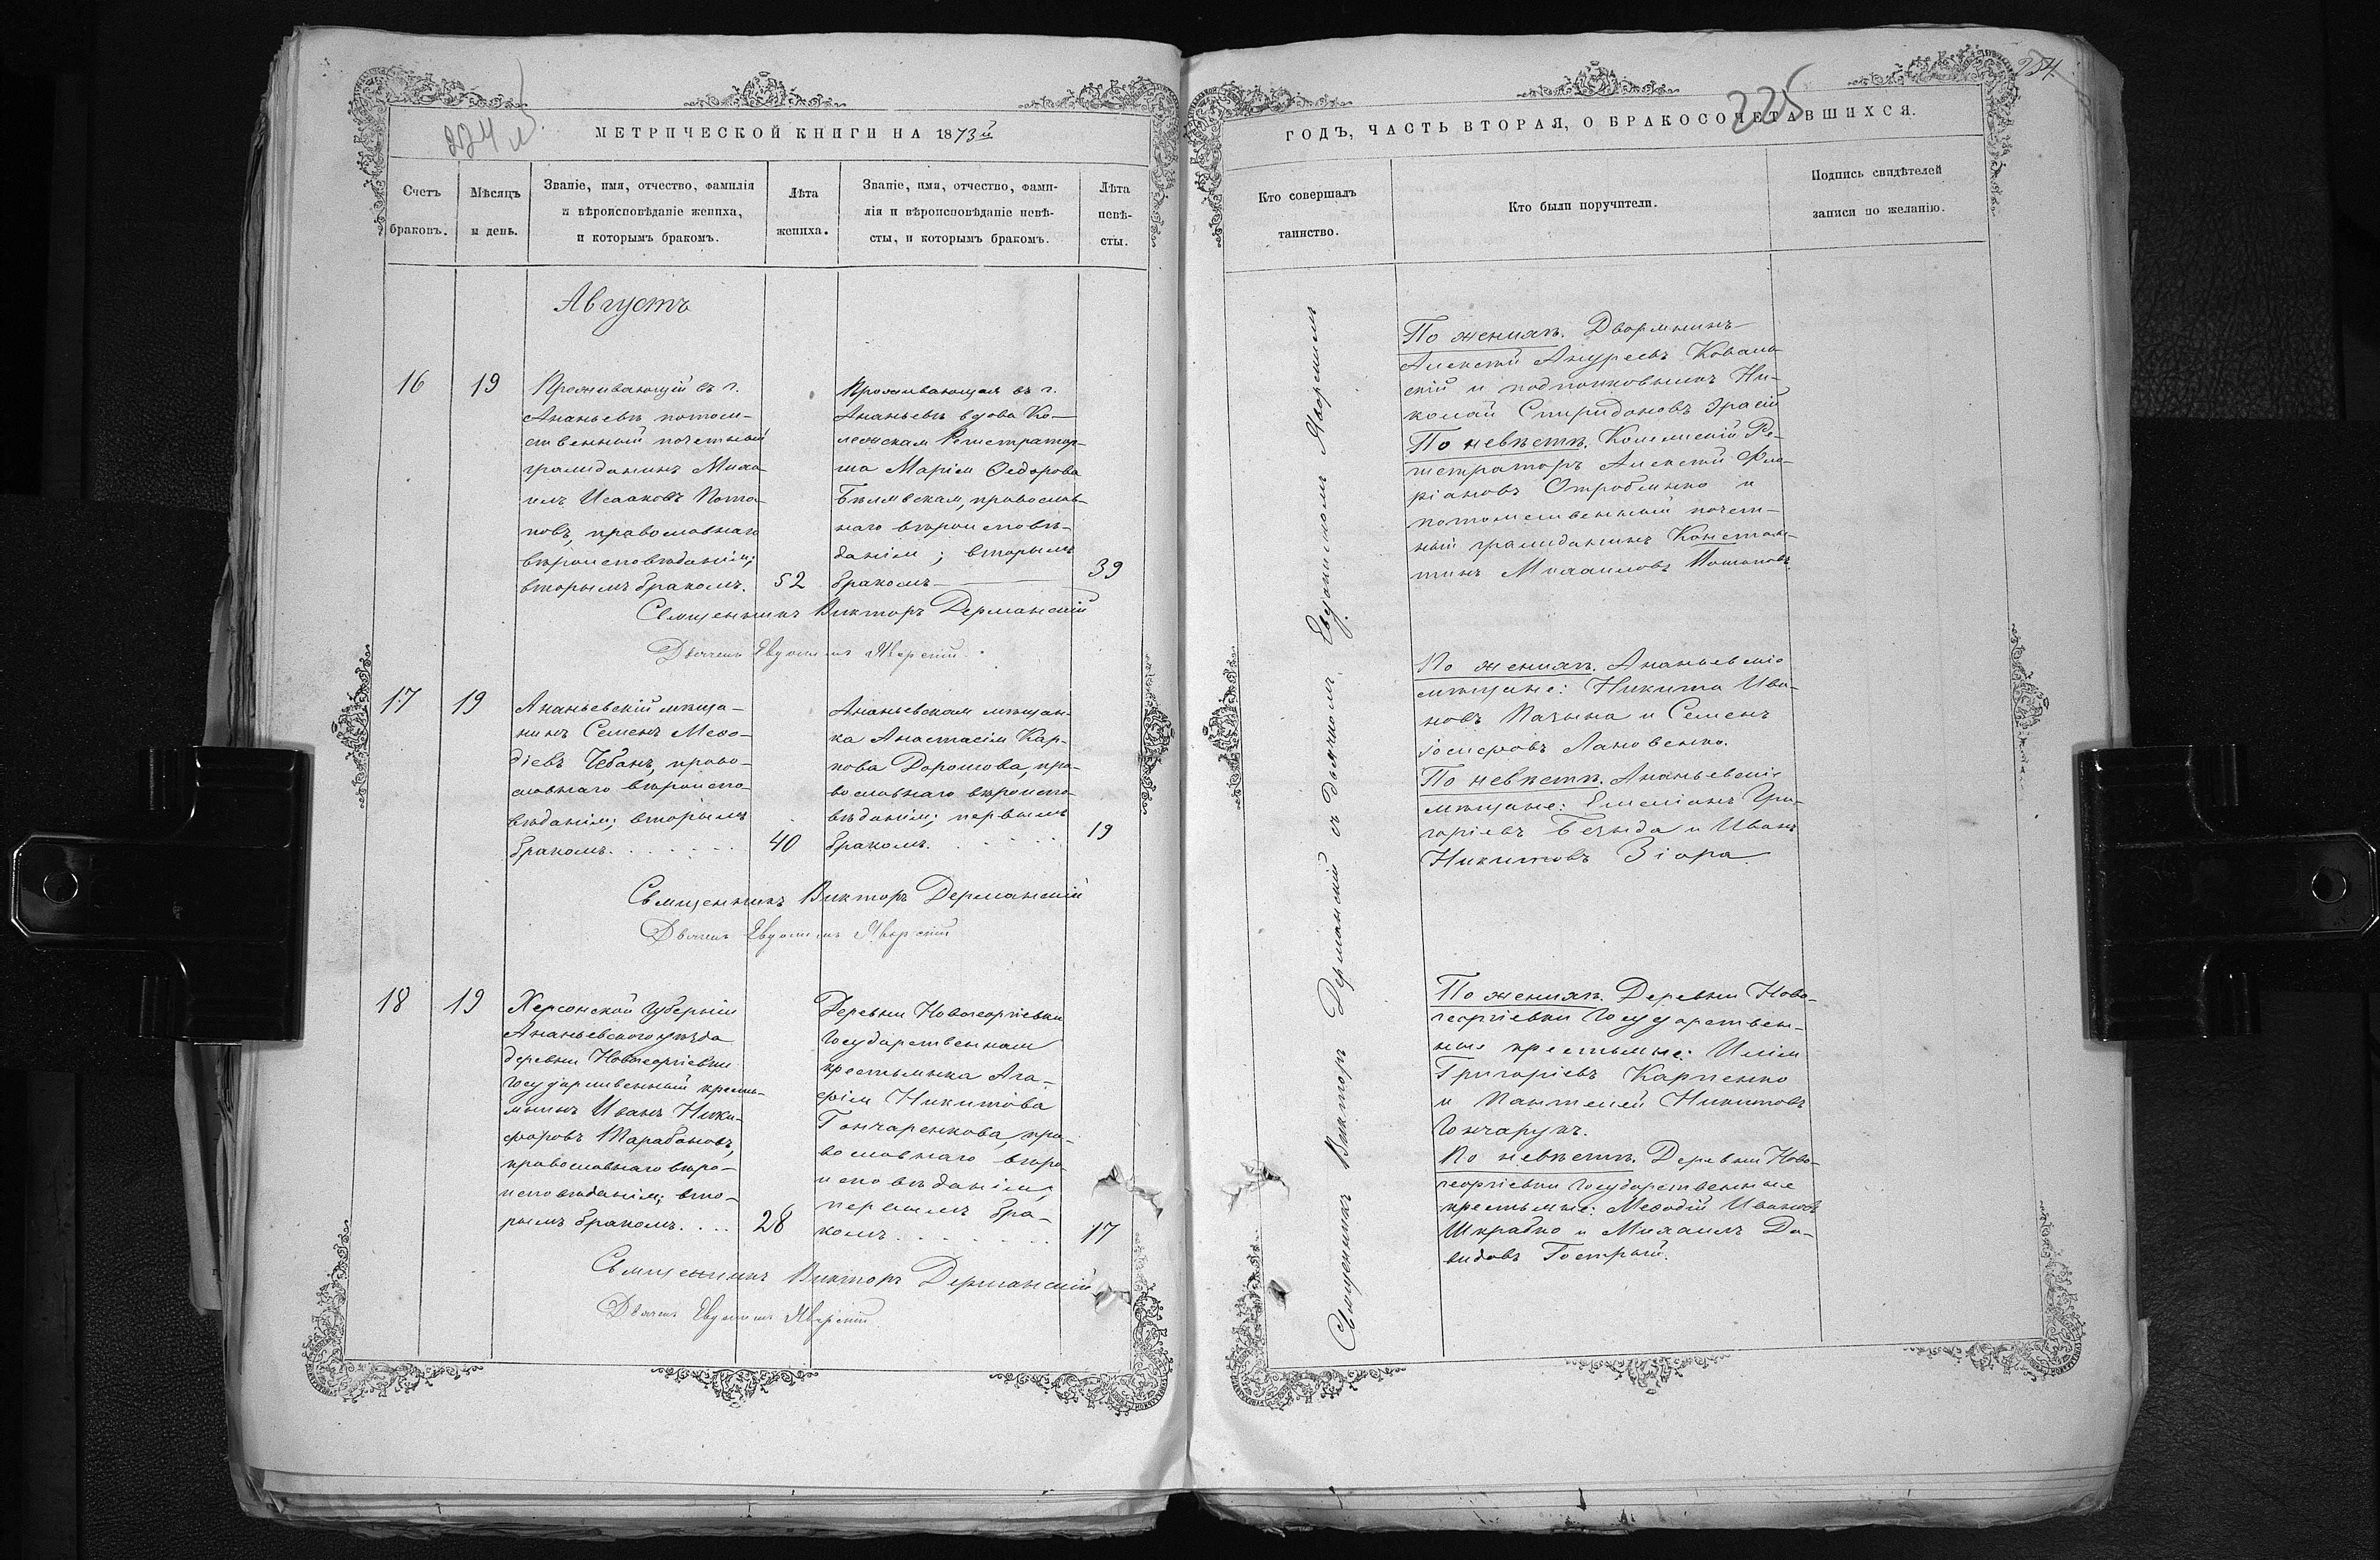 224 л
МЕТРИЧЕСКОЙ КНИГИ НА 1873й
Счетъ
браковъ.
Мѣсяцъ
и день.
Званіе, имя, отчество, фамилія
и вѣроисповѣданіе жениха,
и которымъ бракомъ.
Лѣта
жениха.
Званіе, имя, отчество, фами-
лія и вѣроисповѣданіе невѣ-
сты, и которымъ бракомъ.
Лѣта
невѣ-
сты.
Августъ
16
19
Проживающій въ г.
Ананьевѣ потом-
ственный почетный
гражданинъ Миха-
илъ Исааковъ Пота-
повъ, православнаго
вѣроисповѣданія;
вторымъ бракомъ.
52
Проживающая въ г.
Ананьевѣ вдова Ко-
лежская Регистратор-
ша Марія Ѳедорова
Бѣлявская, православ-
наго вѣроисповѣ-
данія; вторымъ
бракомъ
39
Священникъ Викторъ Дерманскій
Дьячекъ Евдокимъ Яворскій
17
19
Ананьевскій мѣща-
нинъ Семенъ Меѳо-
діевъ Чебанъ, право-
славнаго вѣроиспо-
вѣданія; вторымъ
бракомъ.
40
Ананьевская мѣщан-
ка Анастасія Кар-
пова Дорошова, пра-
вославнаго вѣроиспо-
вѣданія; первымъ
бракомъ.
19
Священникъ Викторъ Дерманскій
Дьячекъ Евдокимъ Яворскій
18
19
Херсонской губерніи
Ананьевскаго уѣзда
деревни Новогеоргіевки
Государственный кресть-
янинъ Иванъ Ники-
форовъ Тарабановъ,
православнаго вѣро-
исповѣданія; вто-
рымъ бракомъ.
28
Деревни Новогеоргіевки
Государственная
крестьянка Ага-
фія Никитова
Гончаренкова, пра-
вославнаго вѣро-
исповѣданія,
первымъ бра-
комъ.
17
Священникъ Викторъ Дерманскій
Дьячекъ Евдокимъ Яворскій
225
254
ГОДЪ, ЧАСТЬ ВТОРАЯ, О БРАКОСОЧЕТАВШИХСЯ.
Кто совершалъ
таинство.
Кто были поручители.
Подпись свидѣтелей
записи по желанію.
Священникъ Викторъ Дерманскій съ дьячкомъ Евдокимомъ Яворскимъ
По женихѣ. Дворянинъ
Алексѣй Андреевъ Коваль-
скій и подполковникъ Ни-
колай Спиридоновъ
По невѣстѣ. Колежскій Ре-
гистраторъ Алексѣй Фло-
ріановъ и
потомственный почет-
ный гражданинъ Констан-
тинъ Михаиловъ Потаповъ.
По женихѣ. Ананьевскіе
мѣщане: Никита Ива-
новъ Пачына и Семенъ
Іосифовъ Лановенко.
По невѣстѣ. Ананьевскіе
мѣщане: Емеліанъ Гри-
горіевъ и Иванъ
Никитовъ Зіора
По женихѣ. Деревни Ново-
георгіевки Государствен-
ные крестьяне: Илія
Григоріевъ Карпенко
и Пантелей Никитовъ
Гончарукъ.
По невѣстѣ. Деревни Ново-
георгіевки Государственные
крестьяне: Меѳодій Ивановъ
Шкрабко и Михаилъ Да-
видовъ Гострый.